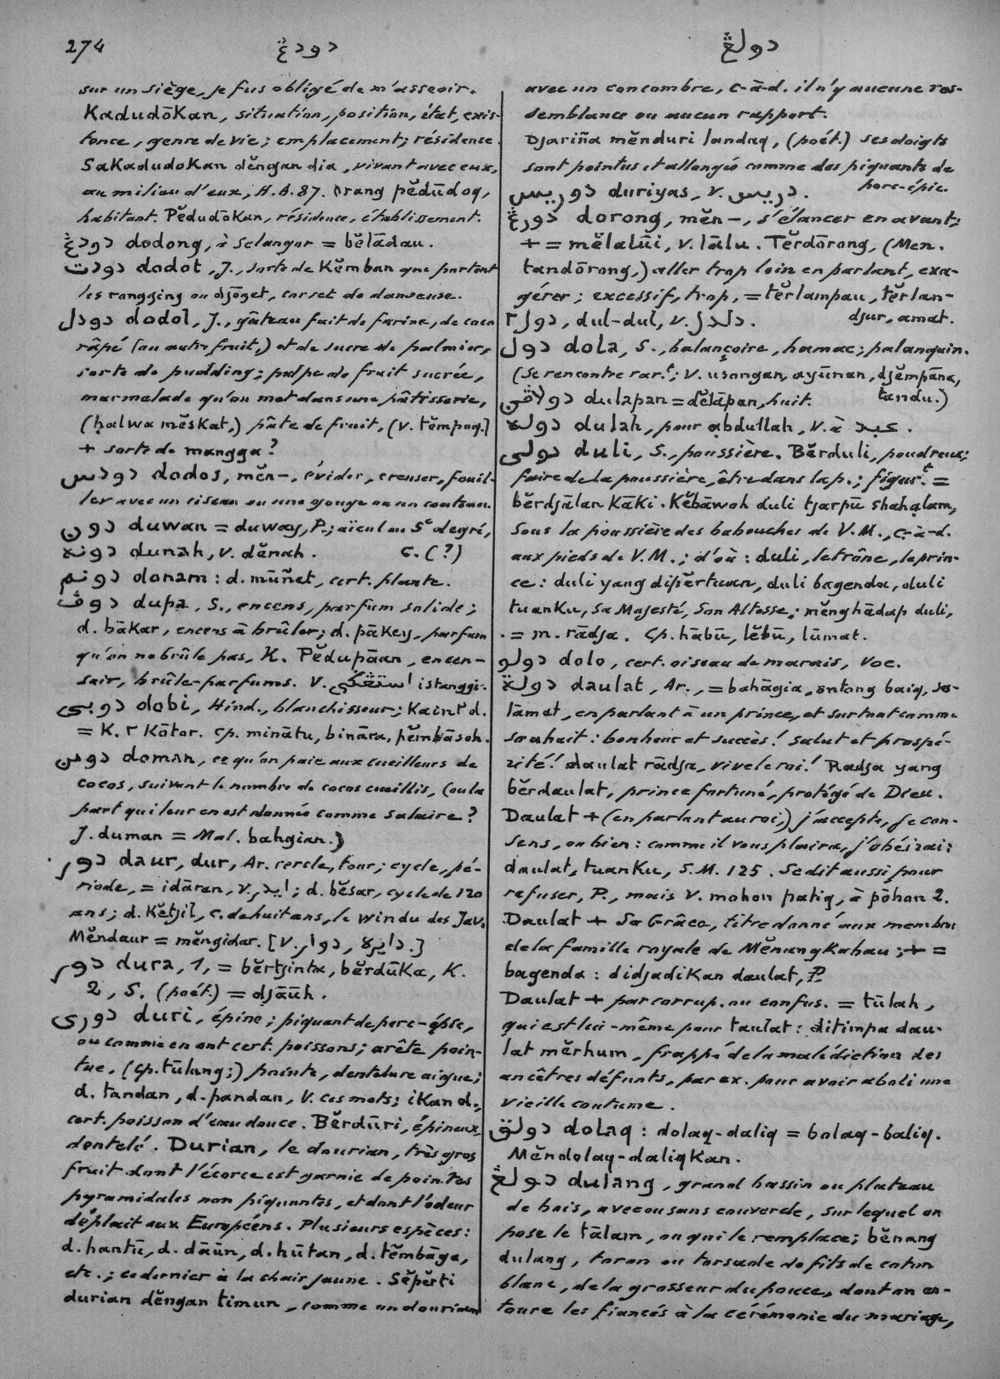 274
دودڠ
دولڠ
sur un siège, je fus obligé de m'asseoir.
Kadudōkan, situation, position, état, exis-
tence, genre de vie; emplacement; résidence.
Sakadudokan děngan dia, vivant avec eux,
au milieu d'eux, H.A.87. Orang pědūdoq,
habitant. Pědudōkan, résidence, établissement.
دودڠ dodong, à Selangor = bělādau.
دودت dodot, J., sorte de Kěmban que portent
les rongging ou djōget, corset de danseuse.
دودل dodol, J., gâteau fait de farine, de coco
râpé (ou autre fruit,) et de sucre de palmier,
sorte de pudding; pulpe de fruit sucrée,
marmelade qu'on met dans une pâtisserie,
(ḥalwa měskat,) pâte de fruit, (v. těmpoq.)
+ sorte de mangga?
دودس dodos, měn-, évider, creuser, fouil-
ler avec un ciseau ou une gouge ou un couteau.
دون duwan = duwaq, P.; aïeul au 5e degré,
c. (?)
دونه dunah, v. děnah.
دونم donam: d. mūñet, cert. plante.
دوڤ dupa, S., encens, parfum solide;
d. bākar, encens à brûler; d. pākey, parfum
qu'on ne brûle pas, K. Pědupāan, encen-
soir, brûle-parfums. V. استڠڬي istanggi.
دوبي dobi, Hind., blanchisseur; Kain ٢ d.
= K. ٢ Kōtor. Cp. minātu, bināra, pěmbāsoh.
دومن doman, ce qu'on paie aux cueilleurs de
cocos, suivant le nombre de cocos cueillis, (ou la
part qui leur en est donnée comme salaire?
J. duman = Mal. bahgian.)
دور daur, dur, Ar. cercle, tour; cycle, pé-
riode, = idāran, v. ايدر; d. běsar, cycle de 120
ans; d. Kětjil, c. de huit ans, le windu des Jav.
Měndaur = měngidar. [v. دوار, دايره.]
دور dura, 1, = běrtjinta, běrdūka, K.
2, S. (poét.) = djāuh.
دوري duri, épine; piquant de porc-épic,
ou comme en ont cert. poissons; arête poin-
tue, (cp. tūlang;) pointe, dentelure aigue;
d. tandan, d. pandan, v. ces mots; ikan d.,
cert. poisson d'eau douce. Běrdūri, épineux,
dentelé. Durian, le dourian, très gros
fruit dont l'écorce est garnie de pointes
pyramidales non piquantes, et dont l'odeur
déplaît aux Européens. Plusieurs espèces:
d. hantū, d. dāūn, d. hūtan, d. těmbāga,
etc.; ce dernier à la chair jaune. Sěpěrti
durian děngan timun, comme un dourian
avec un concombre, c-à-d. il n'y aucune res-
semblance ou aucun rapport.
Djariña měnduri landaq, (poét.) ses doigts
sont pointus et allongés comme des piquants de
porc-épic.
دوريس duriyas, v. دريس.
دورڠ dorong, měn-, s'élancer en avant;
+ = mělalūi, v. lālu. Těrdōrong, (Men.
tandōrong,) aller trop loin en parlant, exa-
gérer; excessif, trop, = těrlampau, těrlan-
djur, amat.
دول٢, dul-dul, v. دلدل.
دول dola, S., balançoire, hamac; palanquin.
(Se rencontre rart.; v. usongan, ayūnan, djěmpāna,
tandu.)
دولاڤن dulapan = dělāpan, huit.
دوله dulah, pour abdullah, v. à عبد.
دولي duli, S., poussière. Běrduli, poudreux;
faire de la poussière, être dans la p.; figurt. =
běrdjālan Kāki. Kěbāwah duli tjarpū shahalam,
sous la poussière des babouches de V.M., c-à-d.
aux pieds de V.M.; d'où: duli, le trône, le prin-
ce: duli yang dipěrtuan, duli bagenda, duli
tuanku, Sa Majesté, Son Altesse; měnghādap duli,
= m. rādja. Cp. hābū, lěbū, lūmat.
دولو dolo, cert. oiseau de marais, Voc.
دولة daulat, Ar., = bahāgia, ontong baiq, sa-
lāmat, en parlant à un prince, et surtout comme
souhait: bonheur et succès! salut et prospé-
rité! daulat rādja, vive le roi! Radja yang
běrdaulat, prince fortuné, protégé de Dieu.
Daulat + (en parlant au roi,) j'accepte, je con-
sens, ou bien: comme il vous plaira, j'obéirai:
daulat, tuanku, S.M. 125. Se dit aussi pour
refuser, P., mais v. mohon patiq, à pōhon 2.
Daulat + Sa Grâce, titre donné aux membres
de la famille royale de Měnangkabau; + =
bagenda: didjadikan daulat, P.
Daulat + par corrup. ou confus. = tūlah,
qui est lui-même pour taulat: ditimpa dau-
lat měrhum, frappé de la malédiction des
ancêtres défunts, par ex. pour avoir aboli une
vieille coutume.
دولق dolaq: dolaq-daliq = bolaq-baliq.
Měndolaq-daliqkan.
دولڠ dulang, grand bassin ou plateau
de bois, avec ou sans couvercle, sur lequel on
pose le tālam, ou qui le remplace; běnang
dulang, toron ou torsade de fils de coton
blanc, de la grosseur du pouce, dont on en-
toure les fiancés à la cérémonie du mariage,